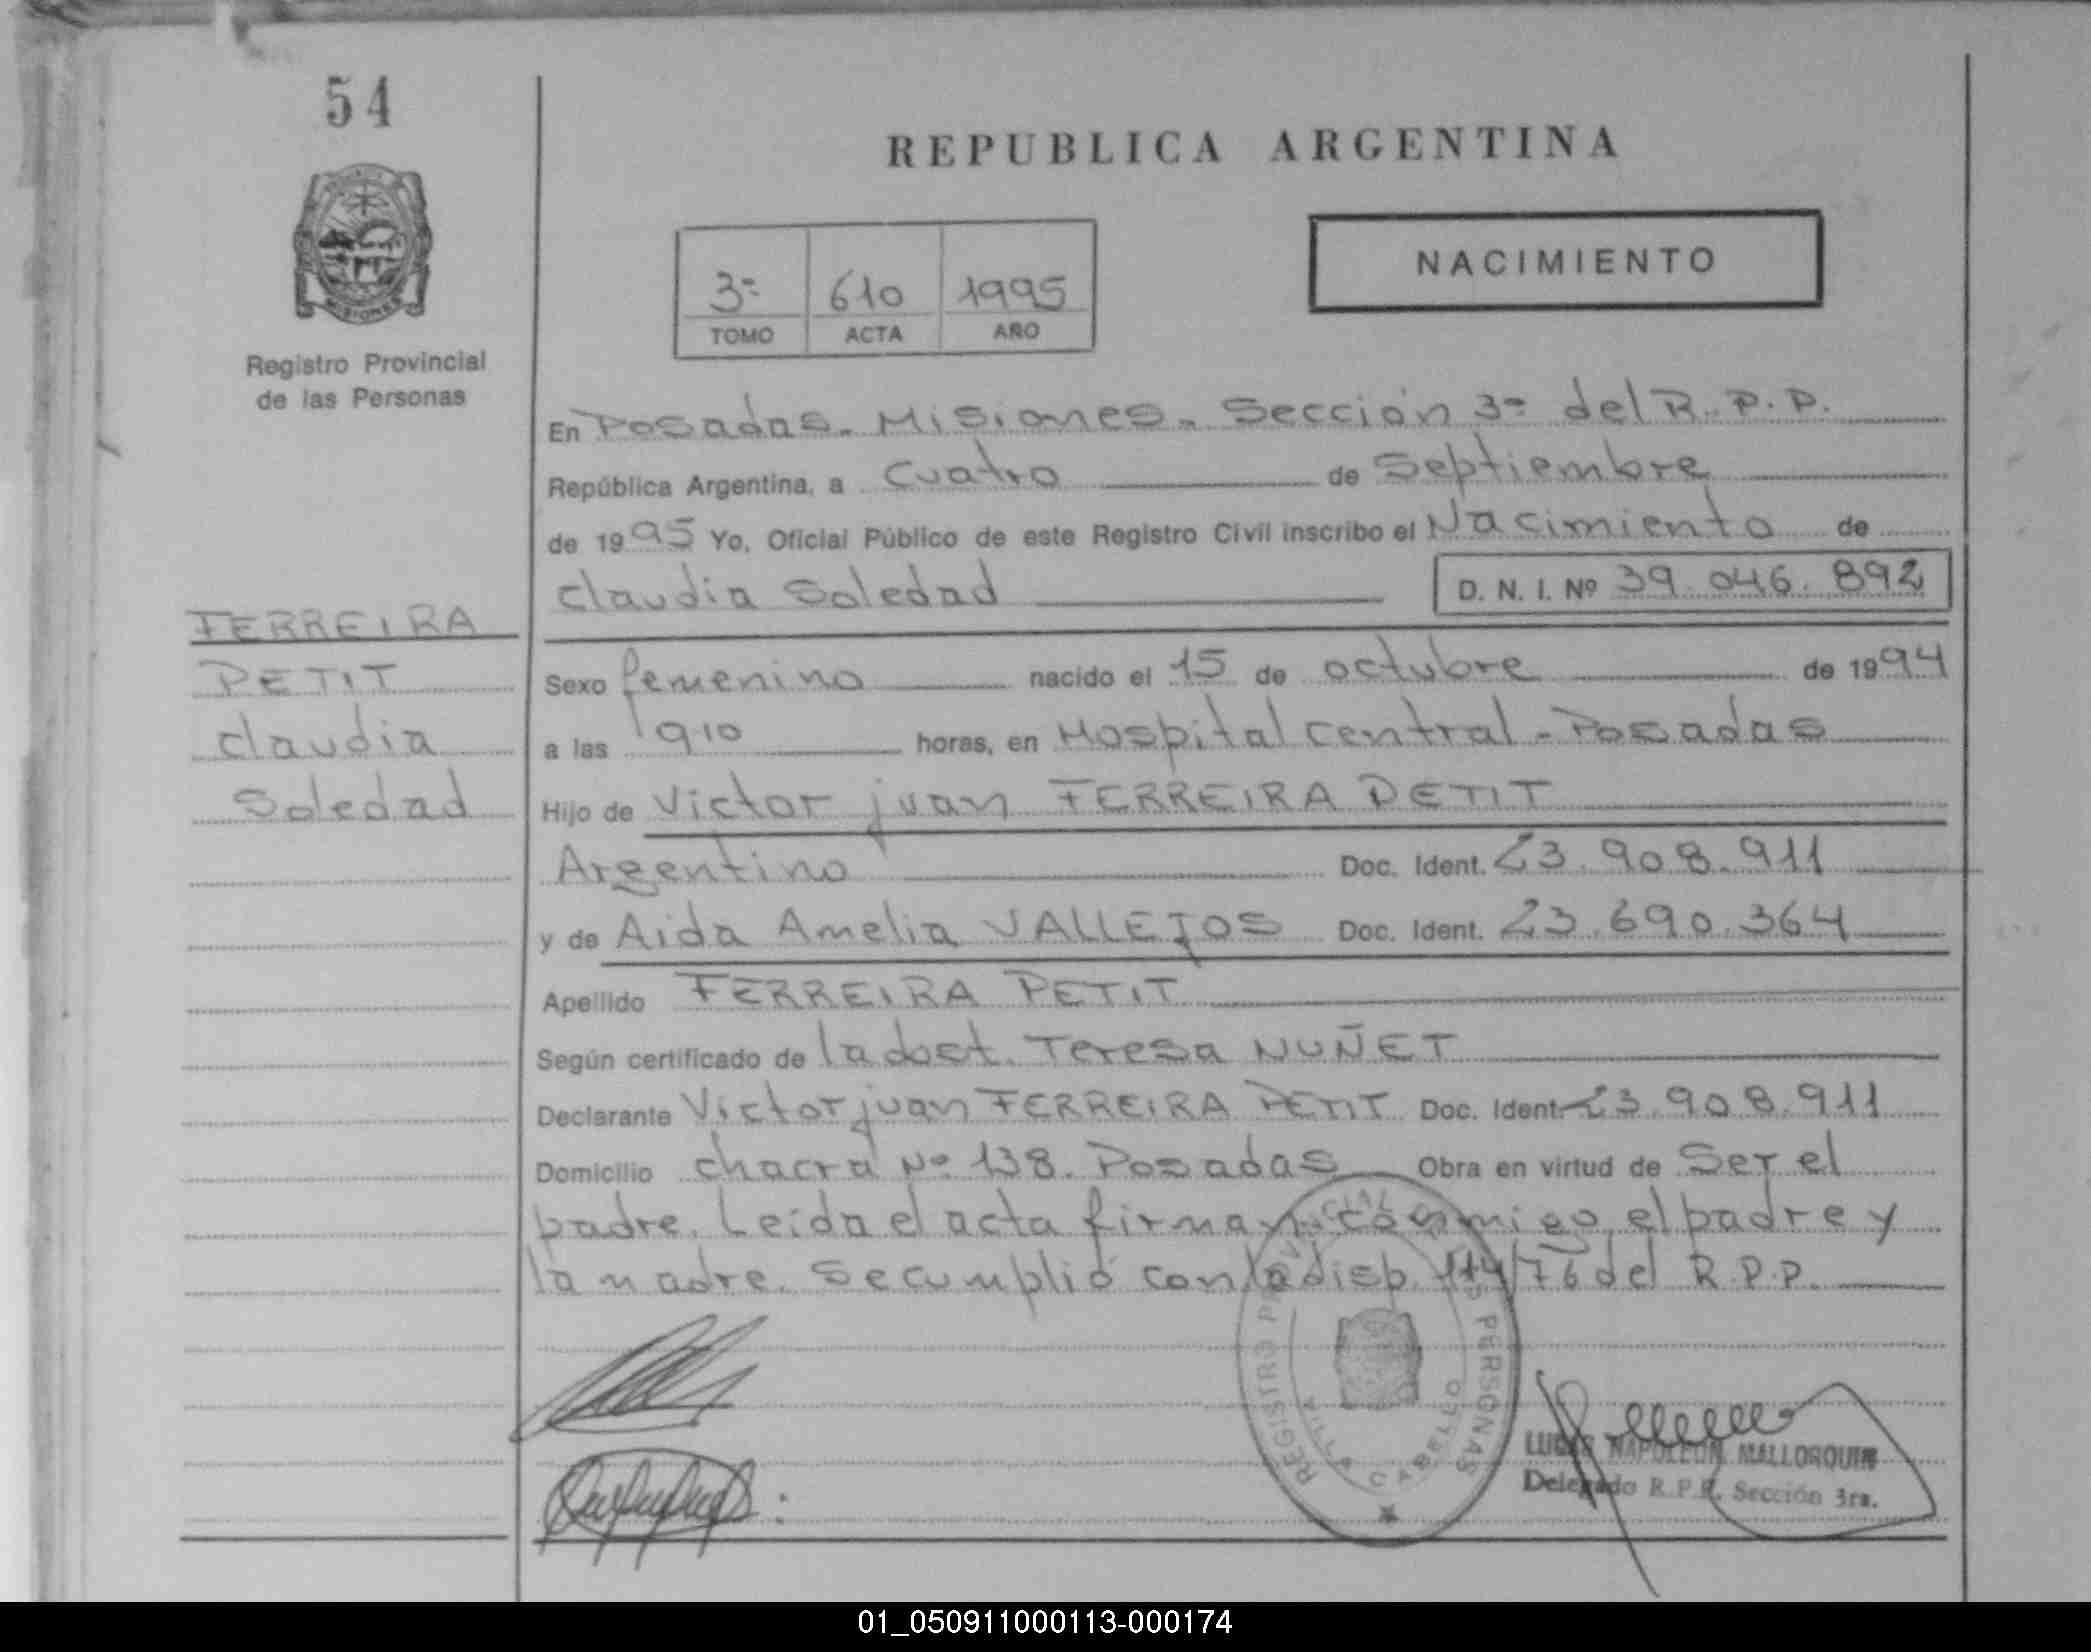 54
REPUBLICA ARGENTINA
NACIMIENTO
3ª 610 1995
TOMO ACTA AÑO
MISIONES
Registro Provincial
de las Personas
En Posadas. Misiones. Sección 3ª del R.P.P.
República Argentina, a Cuatro de Septiembre
de 1995 Yo, Oficial Público de este Registro Civil inscribo el Nacimiento de
Claudia Soledad D. N. I. Nº 39.046.892
FERREIRA
PETIT
Claudia
Soledad
Sexo femenino nacido el 15 de octubre de 1994
a las 1910 horas, en Hospital central - Posadas
Hijo de Victor juan FERREIRA PETIT
Argentino Doc. Ident. 23.908.911
y de Aida Amelia VALLEJOS Doc. Ident. 23.690.364
Apellido FERREIRA PETIT
Según certificado de la obst. Teresa NUÑET
Declarante Victor juan FERREIRA PETIT Doc. Ident. 23.908.911
Domicilio chacra Nº 138. Posadas Obra en virtud de Ser el
padre. Leida el acta firman conmigo el padre y
la madre. Se cumplió con la disp. 114/76 del R.P.P.
REGISTRO PROVINCIAL PERSONAS
VILLA CABELLO
LUCAS NAPOLEON MALLORQUIN
Delegado R.P.P. Sección 3ra.
01_050911000113-000174